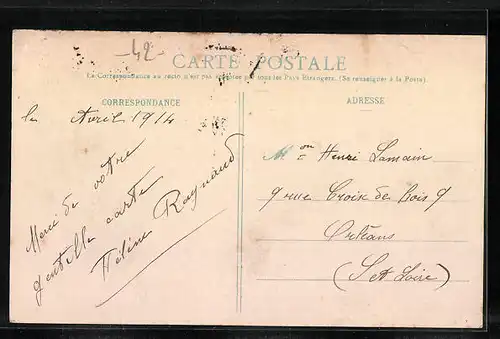 -42-
CARTE POSTALE
La Correspondance au recto n'est pas acceptée par tous les Pays Etrangers. (Se renseigner à la Poste).
CORRESPONDANCE
ADRESSE
le Avril 1914
Merci de votre
gentille carte
Hélène Raynaud
Mon Henri Lamain
9 rue Croix de Bois 9
Orléans
(Set Loire)